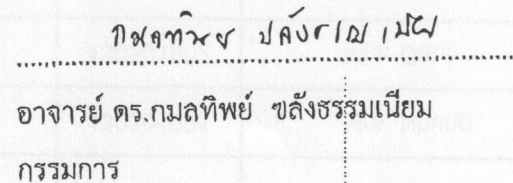 กมลทิพย์ ขลังธรรมเนียม
อาจารย์ ดร.กมลทิพย์ ขลังธรรมเนียม
กรรมการ